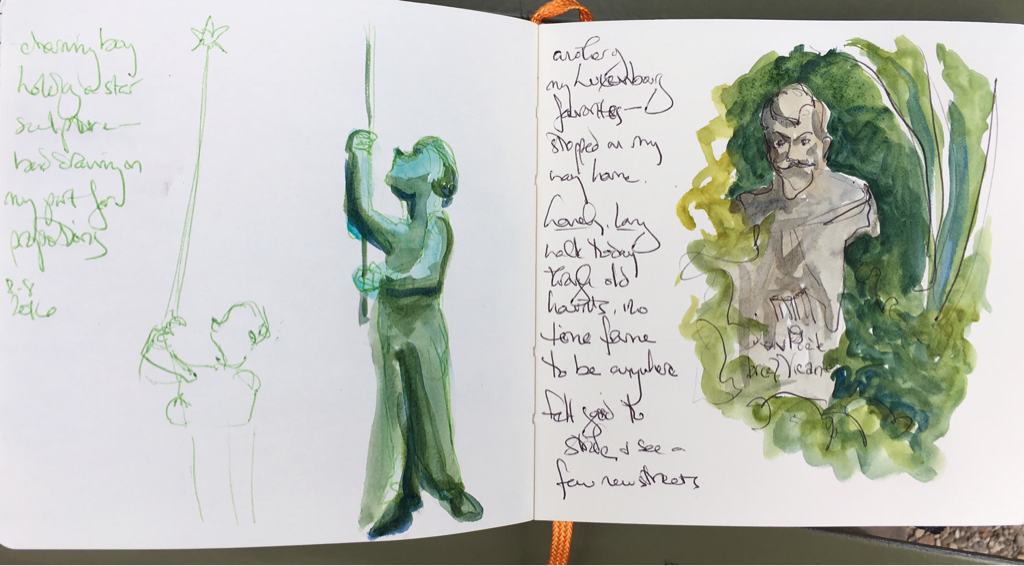 charming boy
holding a star
sculpture—
bad drawing on
my part for
proportions
8-8
2016
another of
my Luxembourg
favorites—
stopped on my
way home.
Lovely, long
walk today
through old
haunts, no
time frame
to be anywhere
felt good to
stride & see a
few new streets